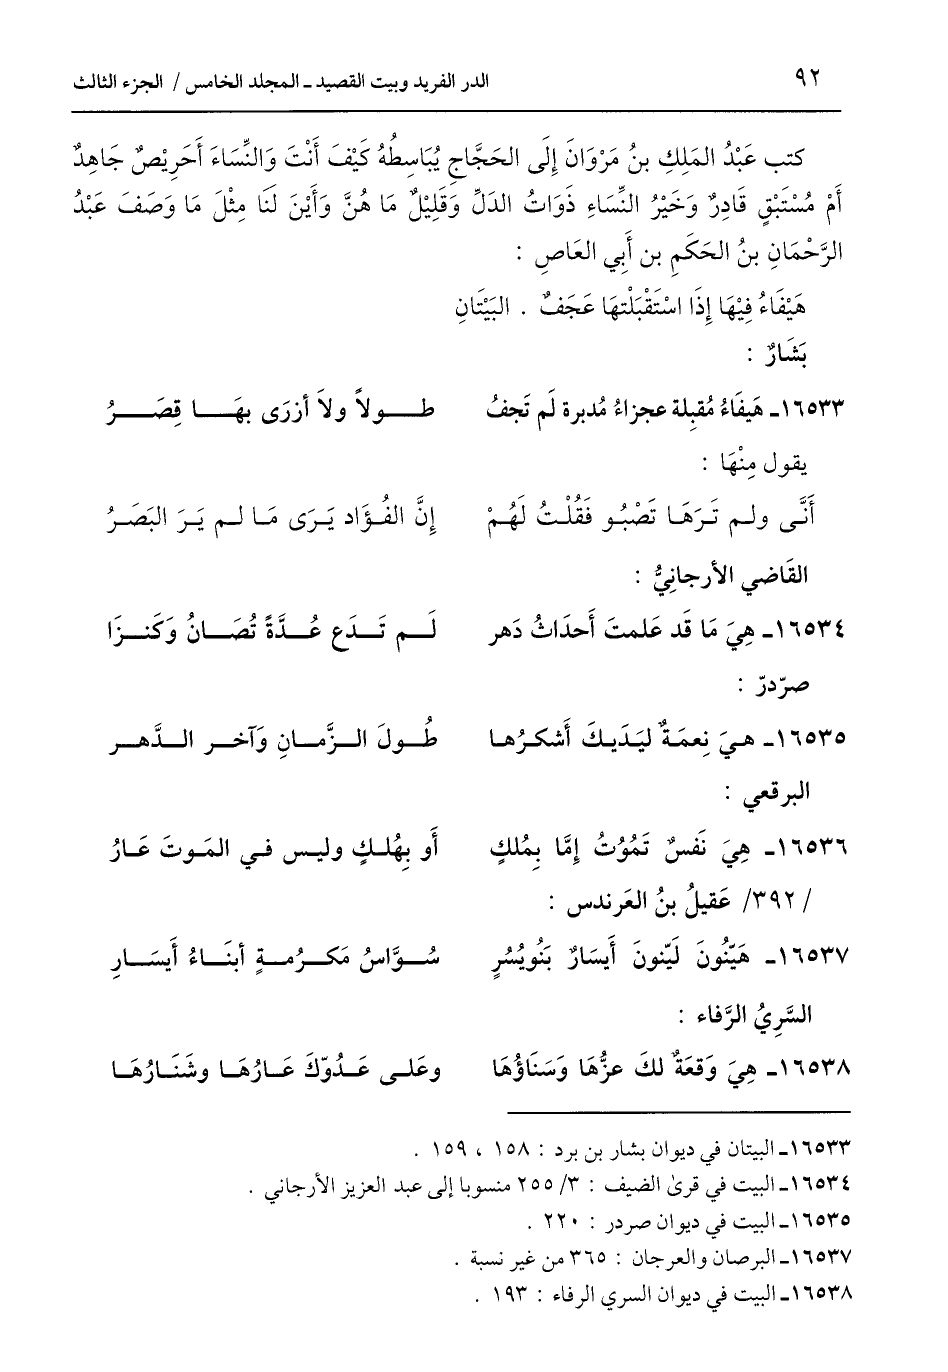 ٩٢ الدر الفريد وبيت القصيد ـ المجلد الخامس / الجزء الثالث
كتب عَبْدُ المَلِكِ بنُ مَرْوَانَ إِلَى الحَجَّاجِ يُبَاسِطُهُ كَيْفَ أَنْتَ وَالنِّسَاءَ أَحَرِيْصٌ جَاهِدٌ
أمْ مُسْتَبْقٍ قَادِرٌ وَخَيْرُ النِّسَاءِ ذَوَاتُ الدَلِّ وَقَلِيْلٌ مَا هُنَّ وَأَيْنَ لَنَا مِثْلَ مَا وَصَفَ عَبْدُ
الرَّحْمَانِ بنُ الحَكَمِ بن أَبِي العَاصِ :
هَيْفَاءُ فِيْهَا إِذَا اسْتَقْبَلْتهَا عَجَفٌ . البَيْتَانِ
بَشَارٌ :
١٦٥٣٣ـ هَيفَاءُ مُقبِلة عجزاءُ مُدبرة لَم تَجفُ طـولاً ولاَ أزرَى بهَـا قِصَـرُ
يقول مِنْهَا :
أَنَّى ولم تَرَهَا تَصْبُو فَقُلْتُ لَهُمْ إنَّ الفُؤَاد يَرَى مَا لم يَرَ البَصَرُ
القَاضي الأرجانِيُّ :
١٦٥٣٤ـ هِيَ مَا قَد عَلمتَ أَحدَاثُ دَهر لَـم تَـدَع عُـدَّةً تُصَـانُ وَكَنـزَا
صرّدرّ :
١٦٥٣٥ـ هيَ نِعمَةٌ ليَدَيكَ أَشكرُها طُـولَ الـزَّمـانِ وَآخـر الـدَّهـر
البرقعي :
١٦٥٣٦ـ هِيَ نَفسٌ تَمُوْتُ إِمَّا بِمُلكٍ أَو بِهُلـكٍ وليـس فـي المَـوتَ عَارُ
/ ٣٩٢/ عَقيلُ بنُ العَرندس :
١٦٥٣٧ـ هَيّنُونَ لَيّنونَ أَيسَارٌ بَنُويُسْرٍ سُـوَّاسُ مَكـرُمـةٍ أبنَـاءُ أَيسَـارِ
السَّرِيُ الرَّفاء :
١٦٥٣٨ـ هِيَ وَقعَةٌ لكَ عزُّهَا وَسَنَاؤُهَا وعَلـى عَـدُوّكَ عَـارُهَـا وشَنَـارُهَـا
١٦٥٣٣ـ البيتان في ديوان بشار بن برد : ١٥٨ ، ١٥٩ .
١٦٥٣٤ـ البيت في قرىٰ الضيف : ٣/ ٢٥٥ منسوبا إلى عبد العزيز الأرجاني .
١٦٥٣٥ـ البيت في ديوان صردر : ٢٢٠ .
١٦٥٣٧ـ البرصان والعرجان : ٣٦٥ من غير نسبة .
١٦٥٣٨ـ البيت في ديوان السري الرفاء : ١٩٣ .